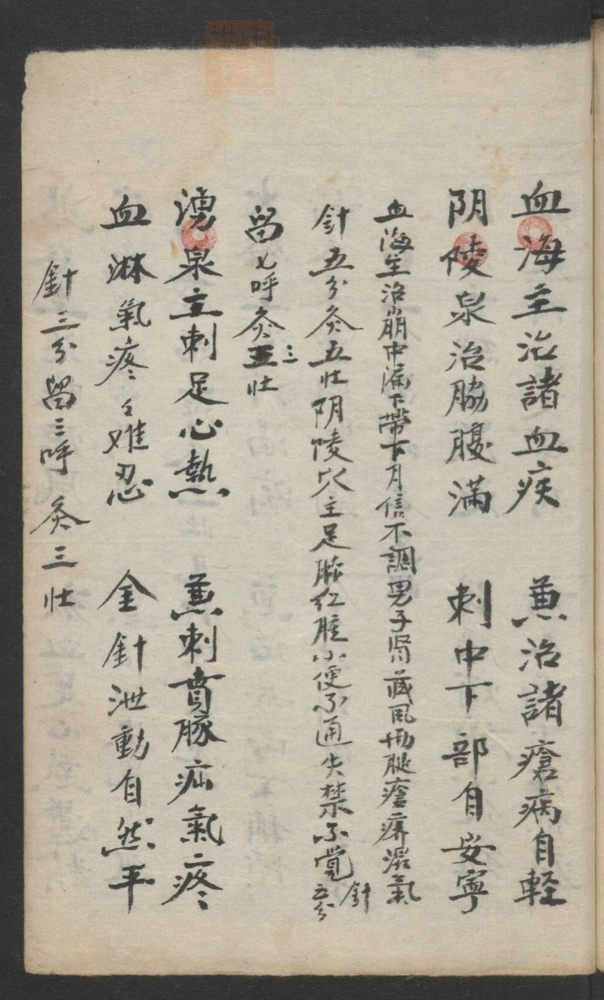 血海主治諸血疾　兼治諸瘡病自軽
阴陵泉治脇腹滿　刺中下部自安寧
血海主治崩中漏下帶下月信不調男子肾藏風両腿瘡痒湿氣
針五分灸五壮阴陵穴主足膝红腫小便不通失禁不覚針五分
留七呼灸三壮
湧泉主刺足心熱　兼刺賁豚疝氣疼
血淋氣疼々难忍　金針泄動自然平
針三分留三呼　灸三壮